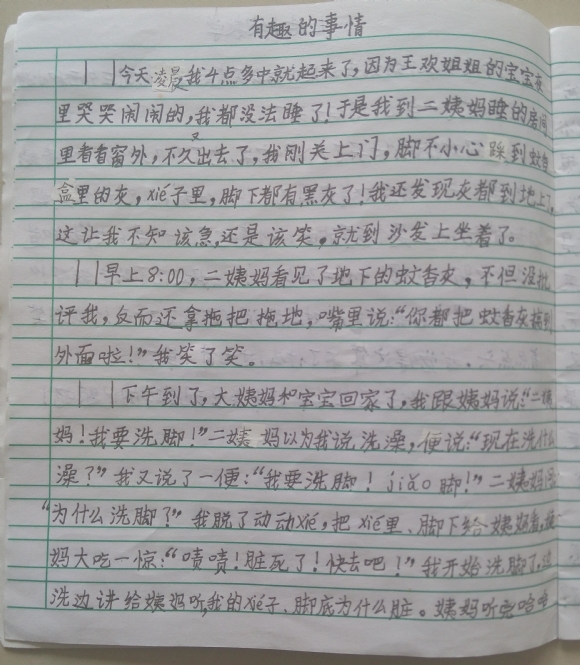 有趣的事情
今天凌晨我4点多中就起来了,因为王欢姐姐的宝宝夜
里哭哭闹闹的,我都没法睡了!于是我到二姨妈睡的房间
里看看窗外,不久又出去了,我刚关上门,脚不小心踩到蚊香
盒里的灰,xié子里,脚下都有黑灰了!我还发现灰都到地上了,
这让我不知该急,还是该笑。就到沙发上坐着了。
早上8:00,二姨妈看见了地下的蚊香灰,不但没批
评我,反而还拿拖把拖地,嘴里说:“你都把蚊香灰搞到
外面啦!”我笑了笑。
下午到了,大姨妈和宝宝回家了,我跟姨妈说:“二姨
妈!我要洗脚!”二姨妈以为我说洗澡,便说:“现在洗什么
澡?”我又说了一便:“我要洗脚!jiǎo脚!”二姨妈问
“为什么洗脚?”我脱了动动xié,把xié里、脚下给姨妈看,姨
妈大吃一惊:“啧啧!脏死了!快去吧!”我开始洗脚了,边
洗边讲给姨妈听,我的xié子、脚底为什么脏。姨妈听完哈哈